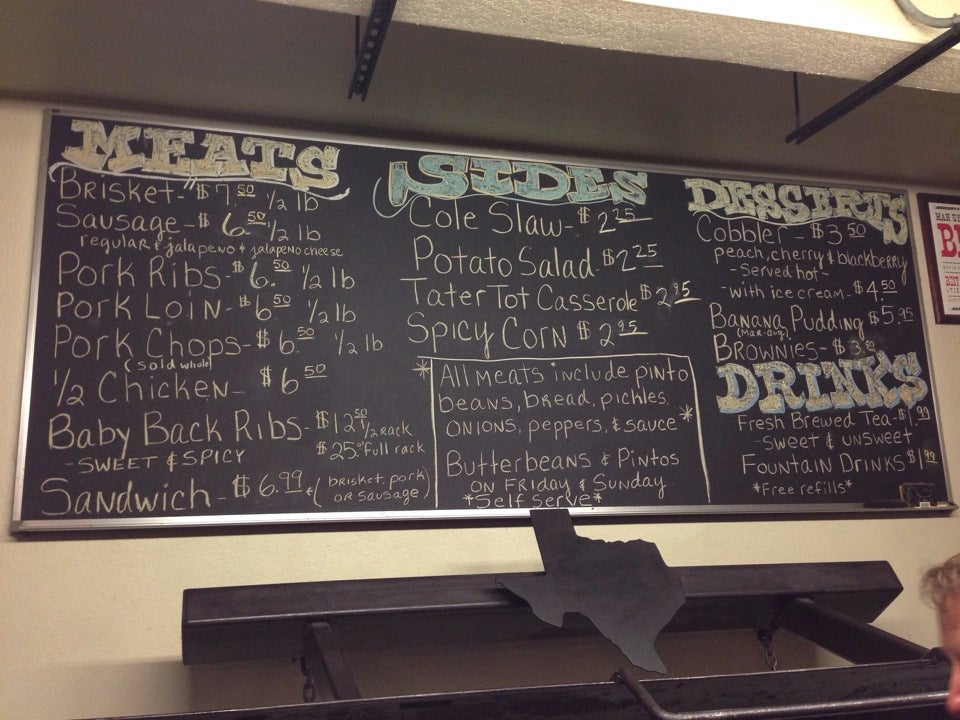 MEATS
BRISKET - $7.50 1/2 lb
Sausage - $6.50 1/2 lb
regular & jalapeno & jalapeno cheese
Pork Ribs - $6.50 1/2 lb
Pork Loin - $6.50 1/2 lb
Pork Chops - $6.50 1/2 lb
(sold whole)
1/2 Chicken - $6.50
Baby Back Ribs - $12.50 1/2 rack
- SWEET & SPICY $25.00 full rack
Sandwich - $6.99 (brisket, pork or sausage)
SIDES
Cole Slaw - $2.25
Potato Salad - $2.25
Tater Tot Casserole $2.95
Spicy Corn $2.95
*All Meats include pinto
beans, bread, pickles,
onions, peppers, & sauce*
Butterbeans & Pintos
on Friday & Sunday
*Self Serve*
DESSERTS
Cobbler - $3.50
peach, cherry & blackberry
- Served hot -
- with ice cream - $4.50
Banana Pudding $5.95
Brownies - $3.50
DRINKS
Fresh Brewed Tea - $1.99
- Sweet & unsweet
Fountain Drinks $1.99
*Free refills*